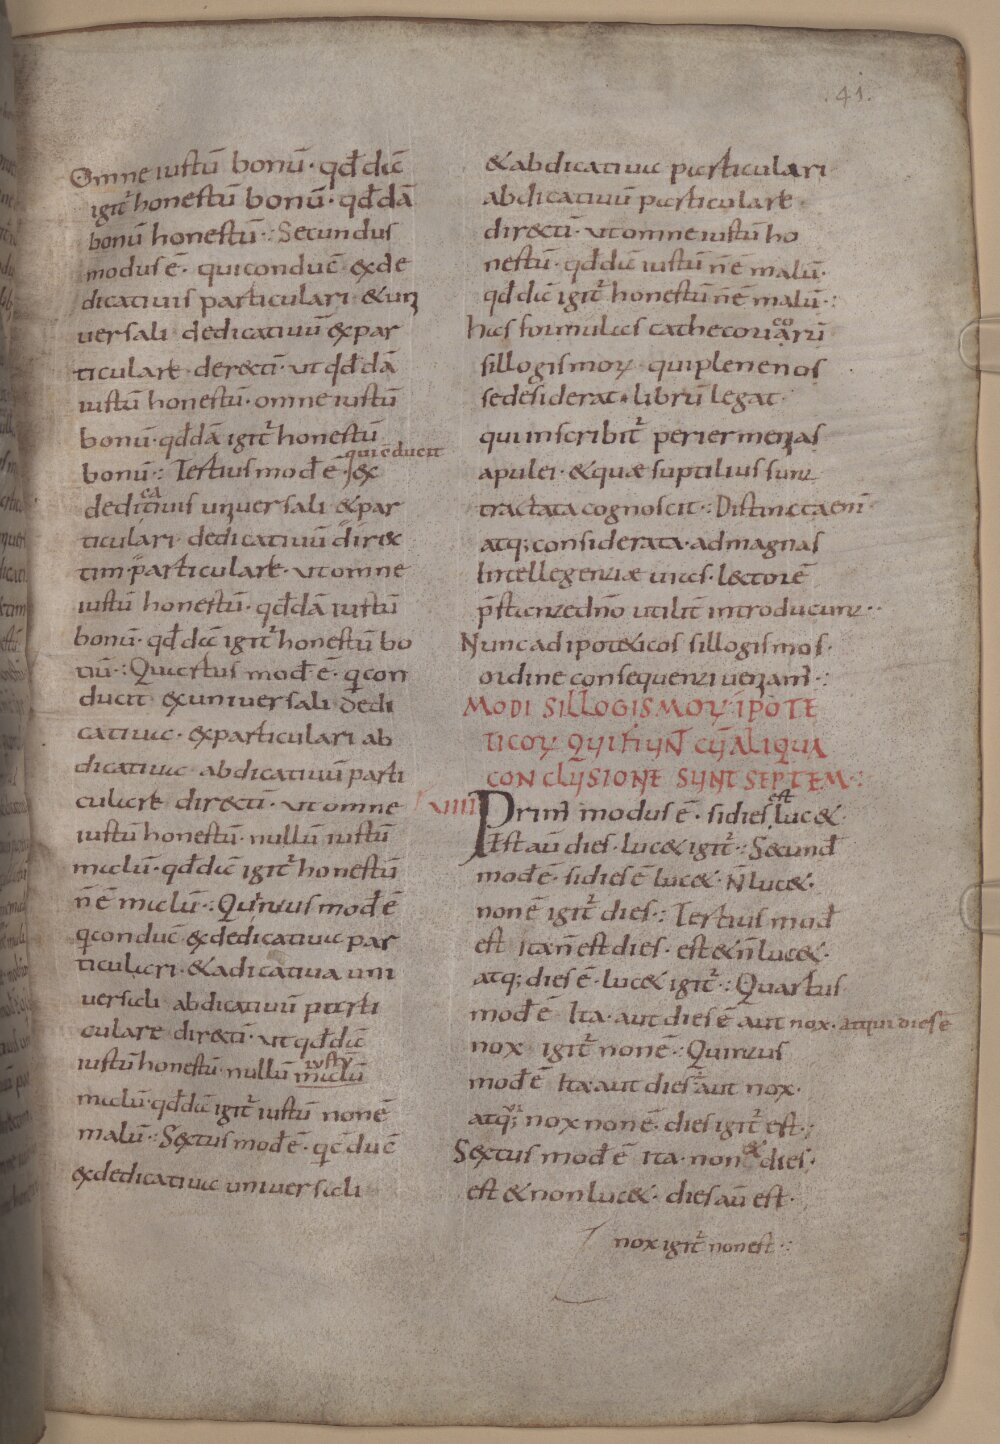 .41.
Omne iustū bonū · qd̄dā
igit̄ honestū bonū · qd̄dā
bonū honestū ·: Secundus
modus ē · qui conduc̄ exde
dicativis particulari & uni
versali dedicativū expar
ticulare derecti · ut qd̄dā
iustū honestū · omne iustū
bonū · qd̄dā igit̄ honestū
bonū ·: Tertius mod̄ ē · qui cducit ex
dedicativis universali & par
ticulari dedicativū direc
tim particulare · ut omne
iustū honestū · qd̄dā iustū
bonū · qd̄dā igit̄ honestū bo
nū ·: Quartus mod̄ ē · q̄ con
ducit ex universali dedi
cativa · exparticulari ab
dicativa abdicativū parti
culare directi · ut omne
iustū honestū · nullū iustū
malū · qd̄dā igit̄ honestū
n̄ ē malū ·: Quintus mod̄ ē
q̄ conduc̄ exdedicativa par
ticulari · & adicativa uni
versali abdicativū parti
culare directi · ut qd̄dā
iustū honestū · nullū malū iustū
malū · qd̄dā igit̄ iustū non ē
malū ·: Sextus mod̄ ē · q̄ c̄duc̄
exdedicativa universali
& abdicativa particulari
abdicativū particulare
directi · ut omne iustū ho
nestū · qd̄dā iustū n̄ ē malū ·
qd̄dā igit̄ honestū n̄ ē malū ·:
has formulas cathecoriarū
sillogismoꝝ qui plene nos
se desiderat · librū legat ·
qui inscribit̄ periermenias
apulei · & quæ suptilius sunt
tractata cognoscit ·: Distincta eni
atq; considerata · ad magnas
Intellegentiæ vias · lectorē
p̄stante dn̄o utilit̄ introducunt ··
Nunc ad ipoteticos sillogismos ·
ordine consequenti veniam ·:
MODI SILLOGISMOꝝ IPOTE
TICOꝝ QUI FIUNT CUM ALIQUA
CONCLUSIONE SUNT SEPTEM ·:
XIIII Prim̄ modus ē · si dies est lucet ·
Est aū dies · lucet igit̄ ·: Secund̄
mod̄ ē · si dies ē lucet · N̄ lucet ·
non ē igit̄ dies ·: Tertius mod̄
est ita n̄ est dies · est & n̄ lucet ·
atq; dies ē · lucet igit̄ ·: Quartus
mod̄ ē Ita · aut dies ē aut nox · atqui dies ē
nox igit̄ non ē ·: Quintus
mod̄ ē Ita aut dies ē aut nox ·
atq; nox non ē · dies igit̄ est ·;
Sextus mod̄ ē ita · non et dies ·
est & non lucet · dies aū est ·
nox igit̄ non est ·: